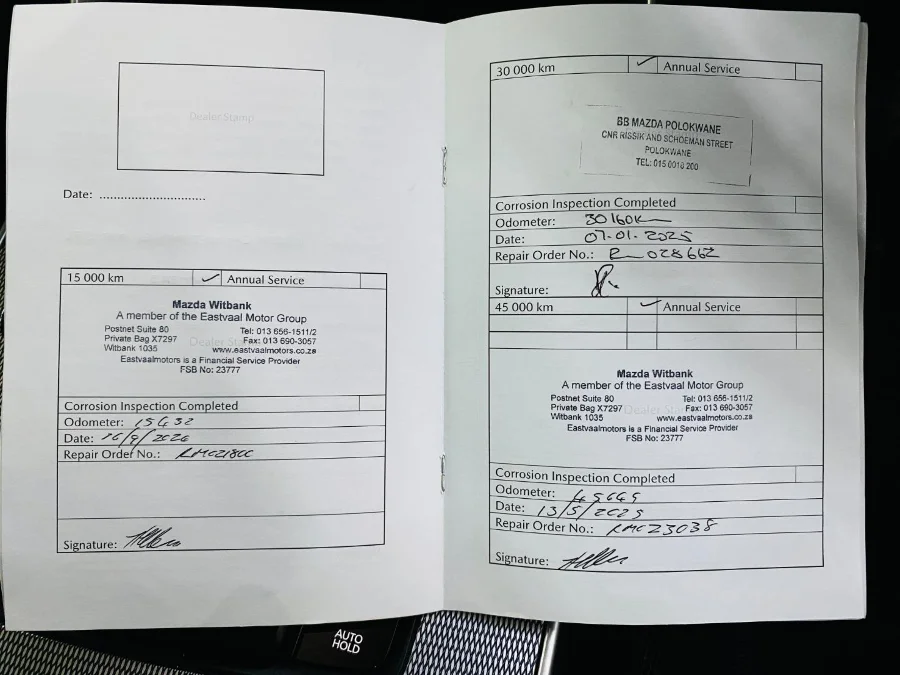 Dealer Stamp
Date: ..............................
15 000 km Annual Service
Mazda Witbank
A member of the Eastvaal Motor Group
Postnet Suite 80 Tel: 013 656-1511/2
Private Bag X7297 Fax: 013 690-3057
Witbank 1035 www.eastvaalmotors.co.za
Eastvaalmotors is a Financial Service Provider
FSB No: 23777
Corrosion Inspection Completed
Odometer: 15432
Date:
Repair Order No.:
Signature:
30 000 km Annual Service
BB MAZDA POLOKWANE
CNR RISSIK AND SCHOEMAN STREET
POLOKWANE
TEL: 015 0010 200
Corrosion Inspection Completed
Odometer: 30160K
Date: 07-01-2025
Repair Order No.: R 028662
Signature:
45 000 km Annual Service
Mazda Witbank
A member of the Eastvaal Motor Group
Postnet Suite 80 Tel: 013 656-1511/2
Private Bag X7297 Fax: 013 690-3057
Witbank 1035 www.eastvaalmotors.co.za
Eastvaalmotors is a Financial Service Provider
FSB No: 23777
Corrosion Inspection Completed
Odometer:
Date: 13/5/2025
Repair Order No.: RMC23038
Signature:
AUTO
HOLD